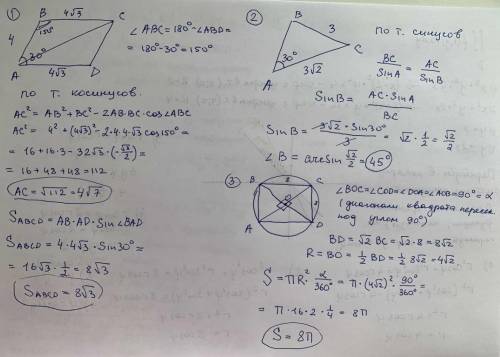 ① B 4√3 C
4 150°
A 30° D
4√3
∠ABC = 180° - ∠ABD =
= 180° - 30° = 150°
по т. косинусов
AC² = AB² + BC² - 2AB·BC·cos∠ABC
AC² = 4² + (4√3)² - 2·4·4√3 cos150° =
= 16 + 16·3 - 32√3·(-√3/2) =
= 16 + 48 + 48 = 112
AC = √112 = 4√7
S ABCD = AB·AD·Sin∠BAD
S ABCD = 4·4√3·Sin30° =
= 16√3·1/2 = 8√3
S ABCD = 8√3
② B
3
C
30°
A 3√2
по т. синусов
BC/SinA = AC/SinB
SinB = AC·SinA/BC
SinB = 3√2·Sin30°/3 = √2·1/2 = √2/2
∠B = arcsin √2/2 = 45°
③ B 8 C
A D
∠BOC = ∠COD = ∠DOA = ∠AOB = 90° = α
(диагонали квадрата пересек
под углом 90°)
BD = √2 BC = √2·8 = 8√2
R = BO = 1/2 BD = 1/2 8√2 = 4√2
S = πR²·α/360° = π·(4√2)²·90°/360° =
= π·16·2·1/4 = 8π
S = 8π